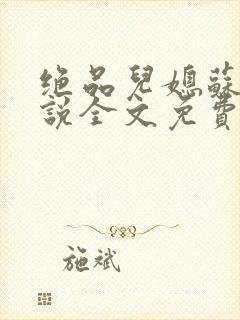 绝品兒媳蘇
說全文免費
施斌